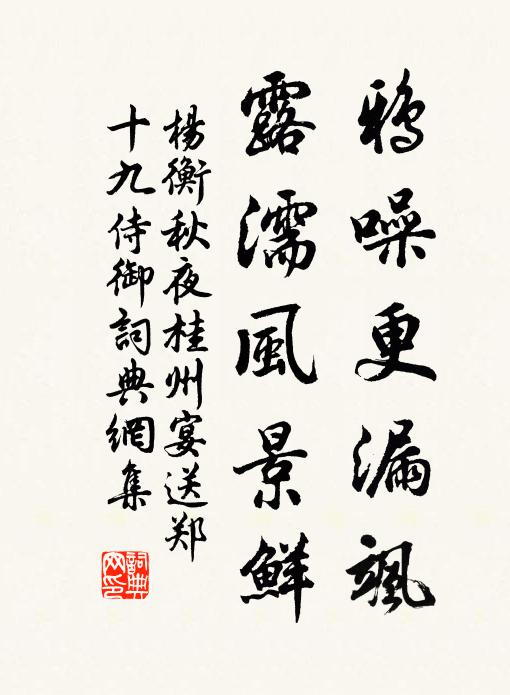 鴉噪更漏颯
露濡風景鮮
楊衡秋夜桂州宴送郑
十九侍御詞典網集
詞典
网印